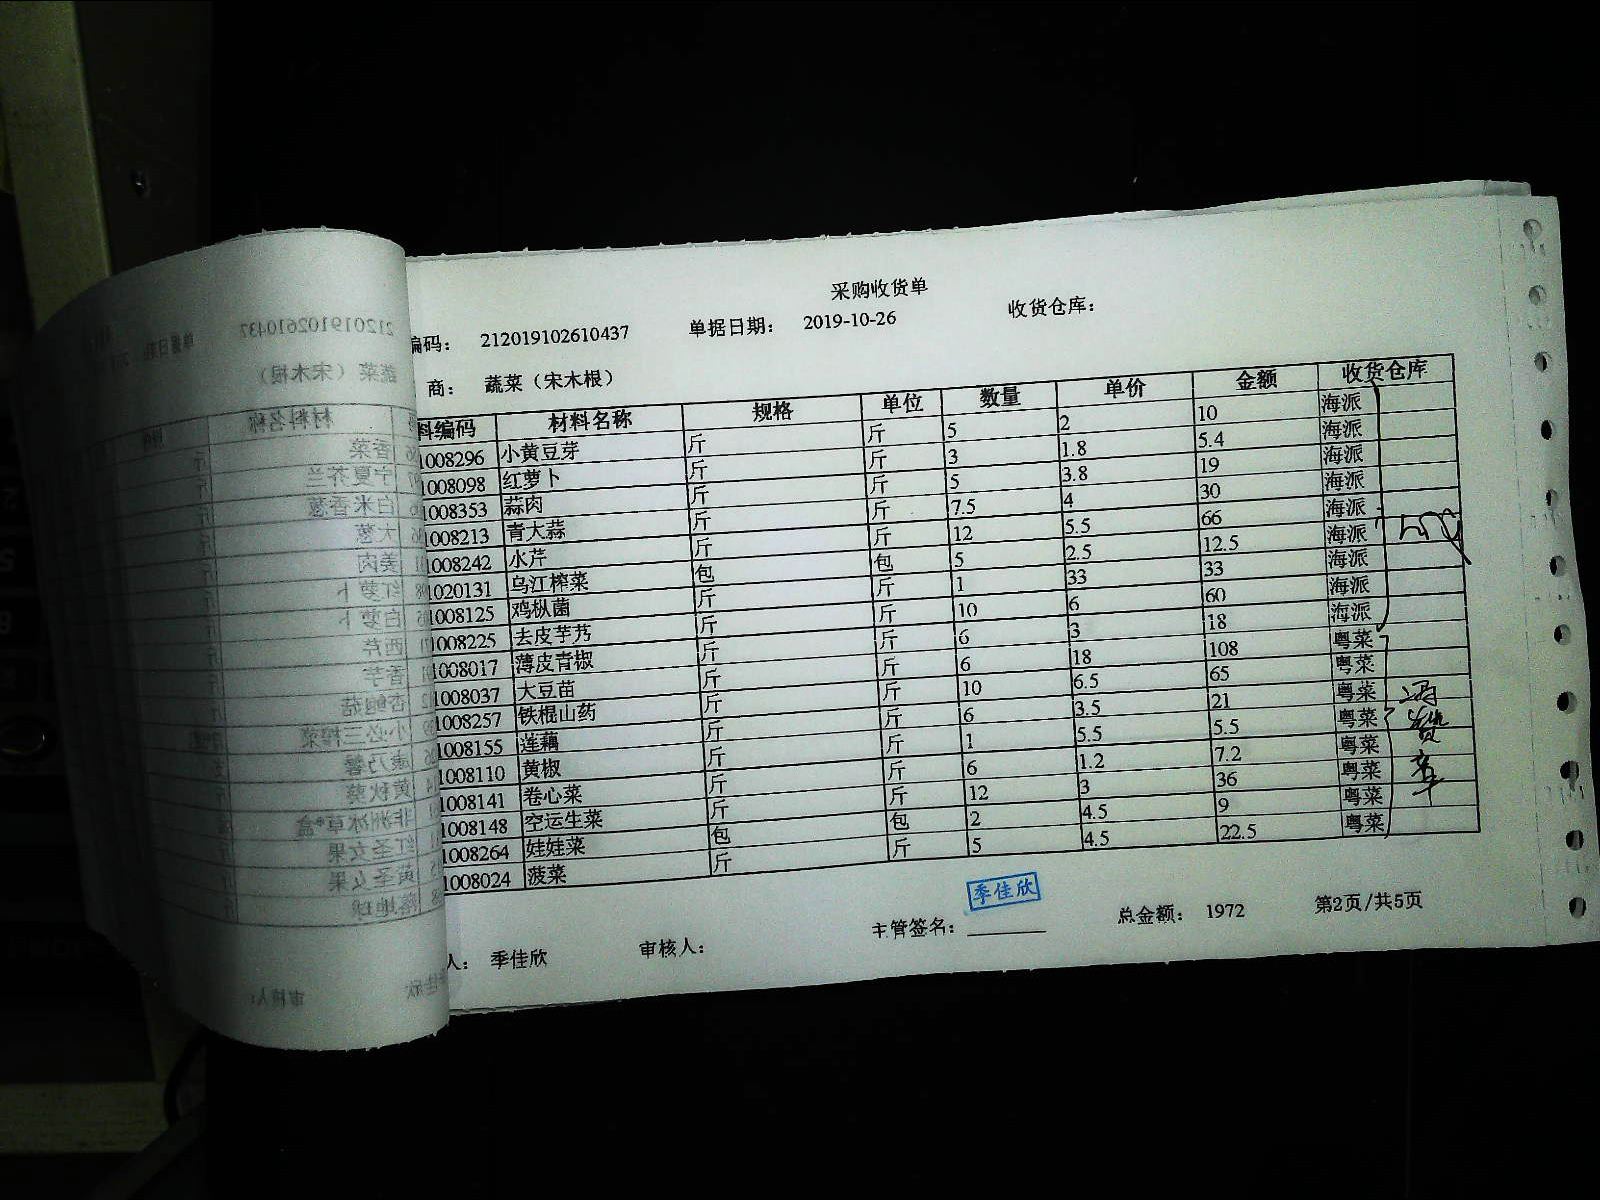 采购收货单
编码： 212019102610437 单据日期： 2019-10-26 收货仓库：
商： 蔬菜（宋木根）
料编码 材料名称 规格 单位 数量 单价 金额 收货仓库
1008296 小黄豆芽 斤 斤 5 2 10 海派
1008098 红萝卜 斤 斤 3 1.8 5.4 海派
1008353 蒜肉 斤 斤 5 3.8 19 海派
1008213 青大蒜 斤 斤 7.5 4 30 海派
1008242 水芹 斤 斤 12 5.5 66 海派
1020131 乌江榨菜 包 包 5 2.5 12.5 海派
1008125 鸡枞菌 斤 斤 1 33 33 海派
1008225 去皮芋艿 斤 斤 10 6 60 海派
1008017 薄皮青椒 斤 斤 6 3 18 海派
1008037 大豆苗 斤 斤 6 18 108 粤菜
1008257 铁棍山药 斤 斤 10 6.5 65 粤菜
1008155 莲藕 斤 斤 6 3.5 21 粤菜
1008110 黄椒 斤 斤 1 5.5 5.5 粤菜
1008141 卷心菜 斤 斤 6 1.2 7.2 粤菜
1008148 空运生菜 斤 斤 12 3 36 粤菜
1008264 娃娃菜 包 包 2 4.5 9 粤菜
1008024 菠菜 斤 斤 5 4.5 22.5 粤菜
季佳欣
人： 季佳欣 审核人： 主管签名： 总金额： 1972 第2页/共5页